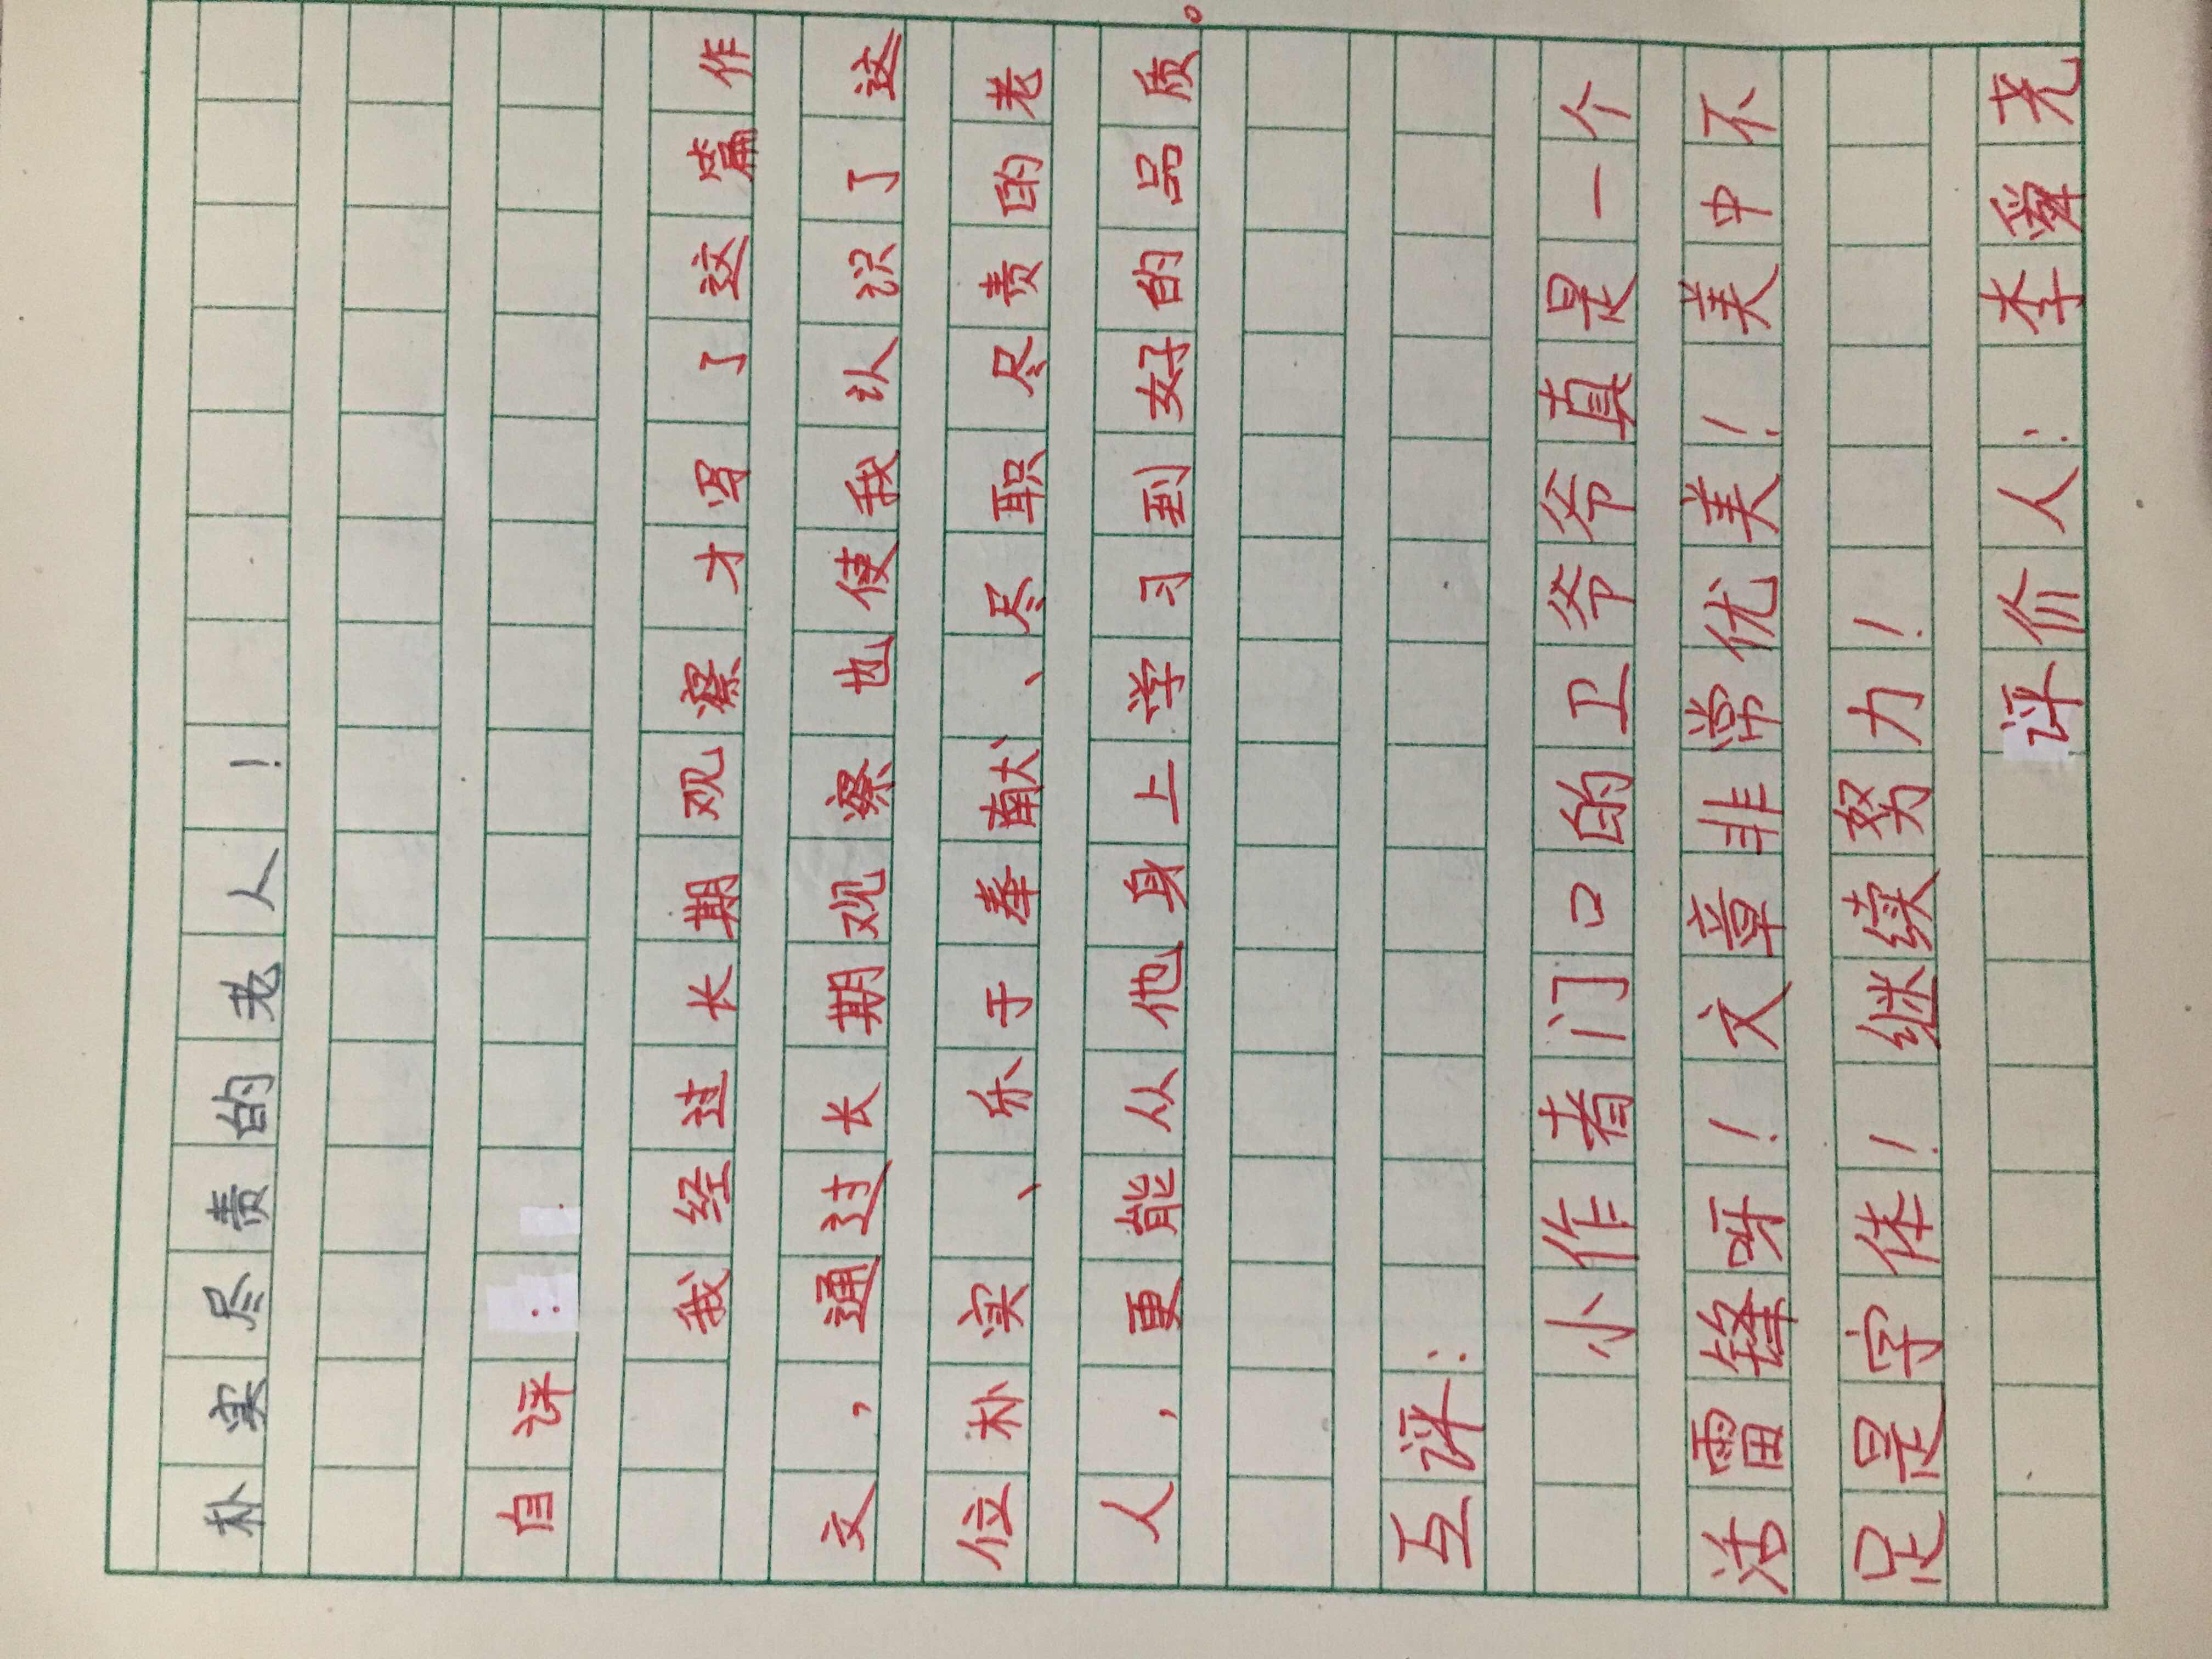 朴实尽责的老人！
自评：
我经过长期观察才写了这篇作
文，通过长期观察也使我认识了这
位朴实、乐于奉献、尽职尽责的老
人，更能从他身上学习到好的品质。
互评：
小作者门口的卫爷爷真是一个
活雷锋呀！文章非常优美！美中不
足是字体！继续努力！
评价人：李舜尧